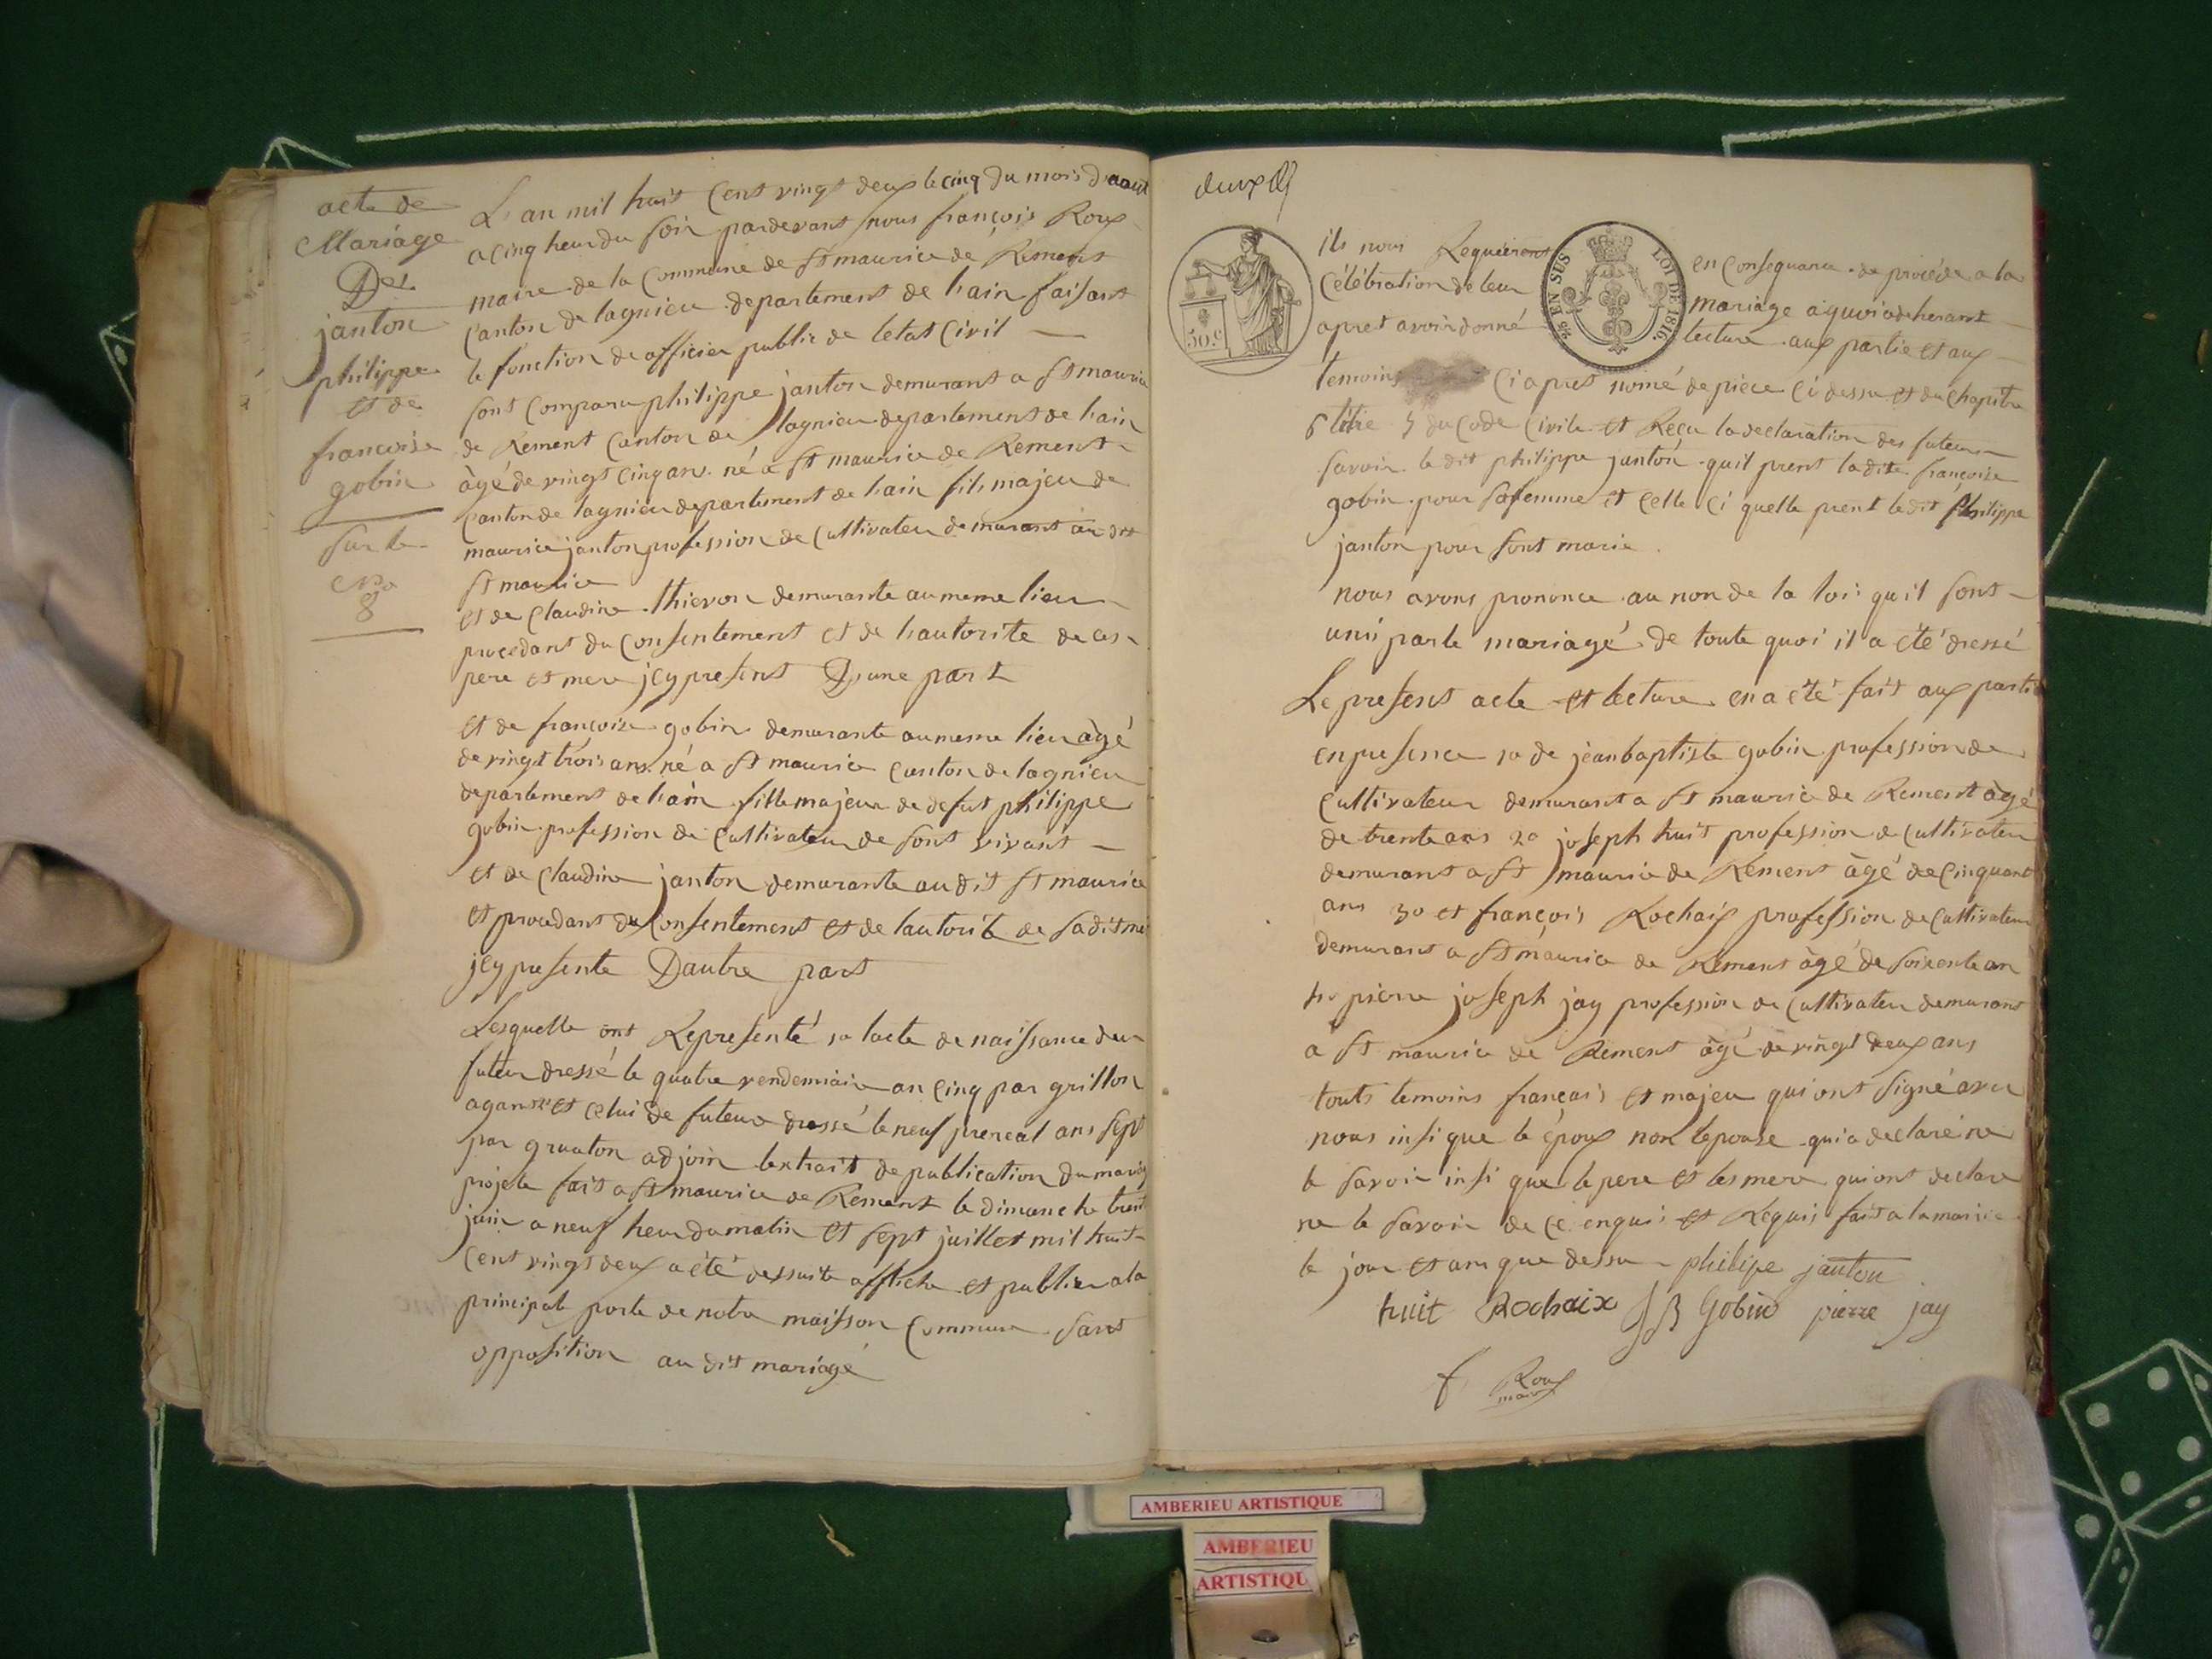 acte de
Mariage
Des
janton
philippe
et de
francoise
gobin
sur le
No
8
L'an mil huit Cent vingt deux le cinq du mois d'aout
a cinq heur du soir pardevant nous françois Roux
maire de la Commune de St maurice de Remens
Canton de lagnieu departement de lain faisant
le fonction de officier public de letat Civil
sont Comparu philippe janton demurant a St maurice
de Rement Canton de lagnieu departement de lain
àgé de vingt Cinq ans né a St maurice de Rement
Canton de lagnieu departement de lain fils majeu de
maurice janton profession de Cultivateu demurant au dit
St maurice
et de Claudine thievon demurante au meme lieu
procedant du Consentement et de l'autorite de ces
pere et mere jcy present D'une part
et de françoise gobin demurante au meme lieu àgé
de vingt trois ans né a St maurice Canton de lagnieu
departement de lain fille majeur de defut philippe
gobin profession de Cultivateu de sont vivant
et de Claudine janton demurante au dit St maurice
et procedant du Consentement et de lautorite de sadit
jcy presente Dautre part
Lesquelle ont Representé 1o lacte de naissance du
futeu dressé le quatre vendemiaire an Cinq par grillon
agant et celui de futeur dressé le neuf prereal ans sept
par gruaton adjoin lextrait de publication du
projete fait a St maurice de Rement le dimanche trent
juin a neuf heur du matin et sept juillet mil huit
Cent vingt deux a été dessuite affiche et publier a la
principale porte de notre maisson Commune sant
opposition au dit mariagé
deux
50.c
¼ EN SUS
LOI DE 1816.
ils nous Requierent en Consequance de procéde a la
Célébration de leur mariage a quoi adherant
apret avoir donné lecture aux partie et aux
temoins Ci apret nomé de piece Ci dessu et du Chapitre
6 titre 5 du Code Civile et Reçu la declaration des futeur
savoir le dit philippe janton quil prent la dite françoise
gobin pour safemme et Celle Ci quelle prent le dit Philippe
janton pour sont marie
nous avons prononce au non de la loi quil sont
uni par le mariagé de toute quoi il a été dressé
Le present acte et lecture en a été fait aux partie
en presence 1o de jean baptiste gobin profession de
Cultivateur demurant a St maurice de Rement àgé
de trente ans 2o joseph huit profession de Cultivateu
demurant a St maurice de Rement àgé de Cinquant
ans 3o et françois Rochaix profession de Cultivateur
demurant a St maurice de Rement àgé de soixente an
4o pierre joseph jay profession de Cultivateu demurant
a St maurice de Rement àgé de vingt deux ans
touts temoins français et majeu qui ont signé avec
nous insi que le époux non lepouse qui a declaré ne
le savoir insi que le pere et les mere qui ont declare
ne le savoir de ce enquis et Requis fait a la mairie
le jour et ans que dessu philipe janton
huit Rochaix JB Gobin pierre jay
f Roux
maire